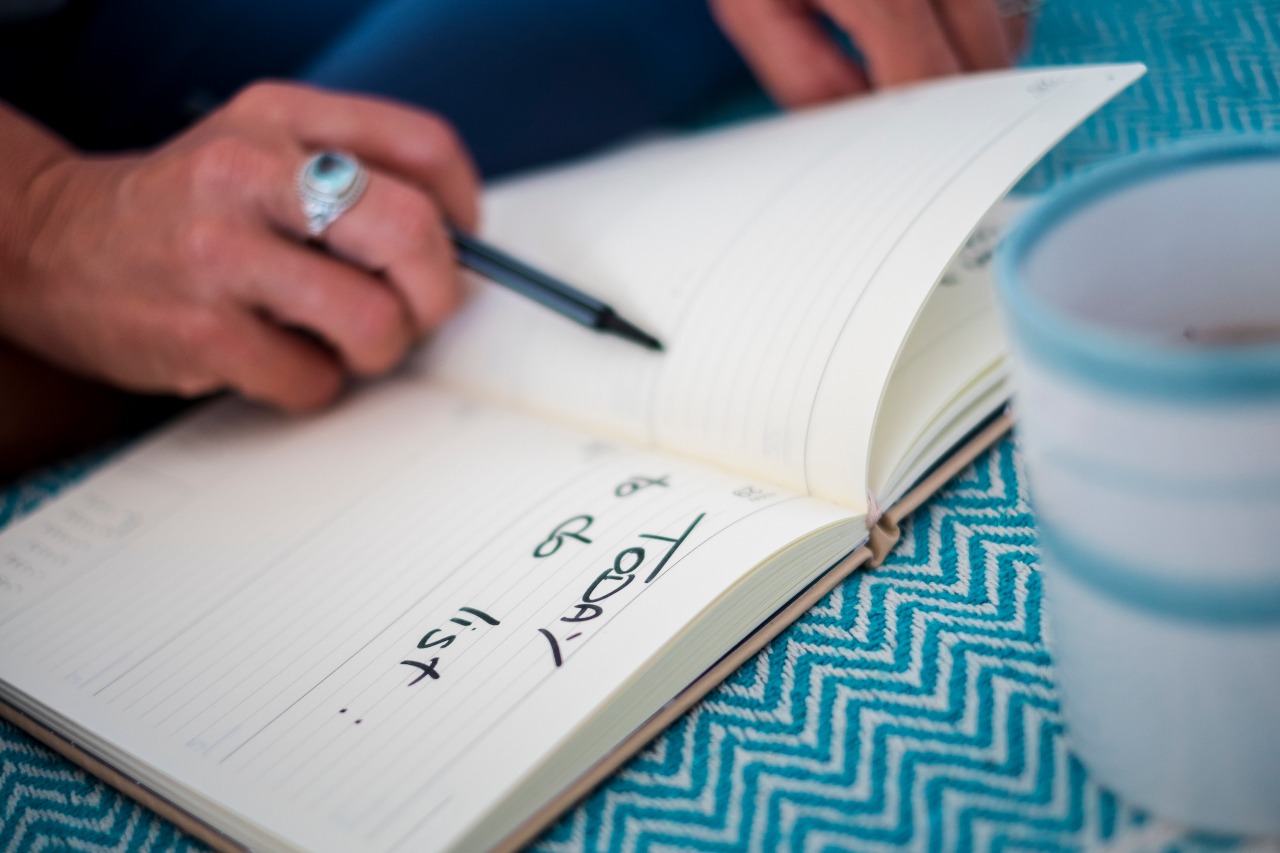 TODAY
to do list :